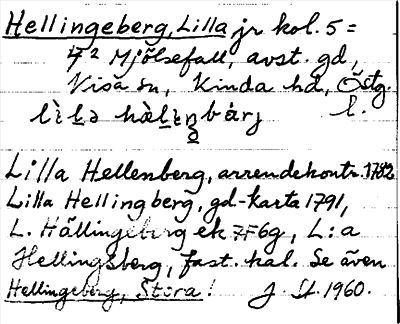 Hellingeberg, Lilla jr kol. 5 =
4² Mjölsefall, avst. gd,
Visä sn, Kinda hd, Östg.
l.
Lilla Hellenberg, arrendekontr. 1782
Lilla Hellingberg, gd-karta 1791,
L. Hällingeberg ek 7F6g, L:a
Hellingsberg, fast. kal. Se även
Hellingeberg, Stora! J. St. 1960.